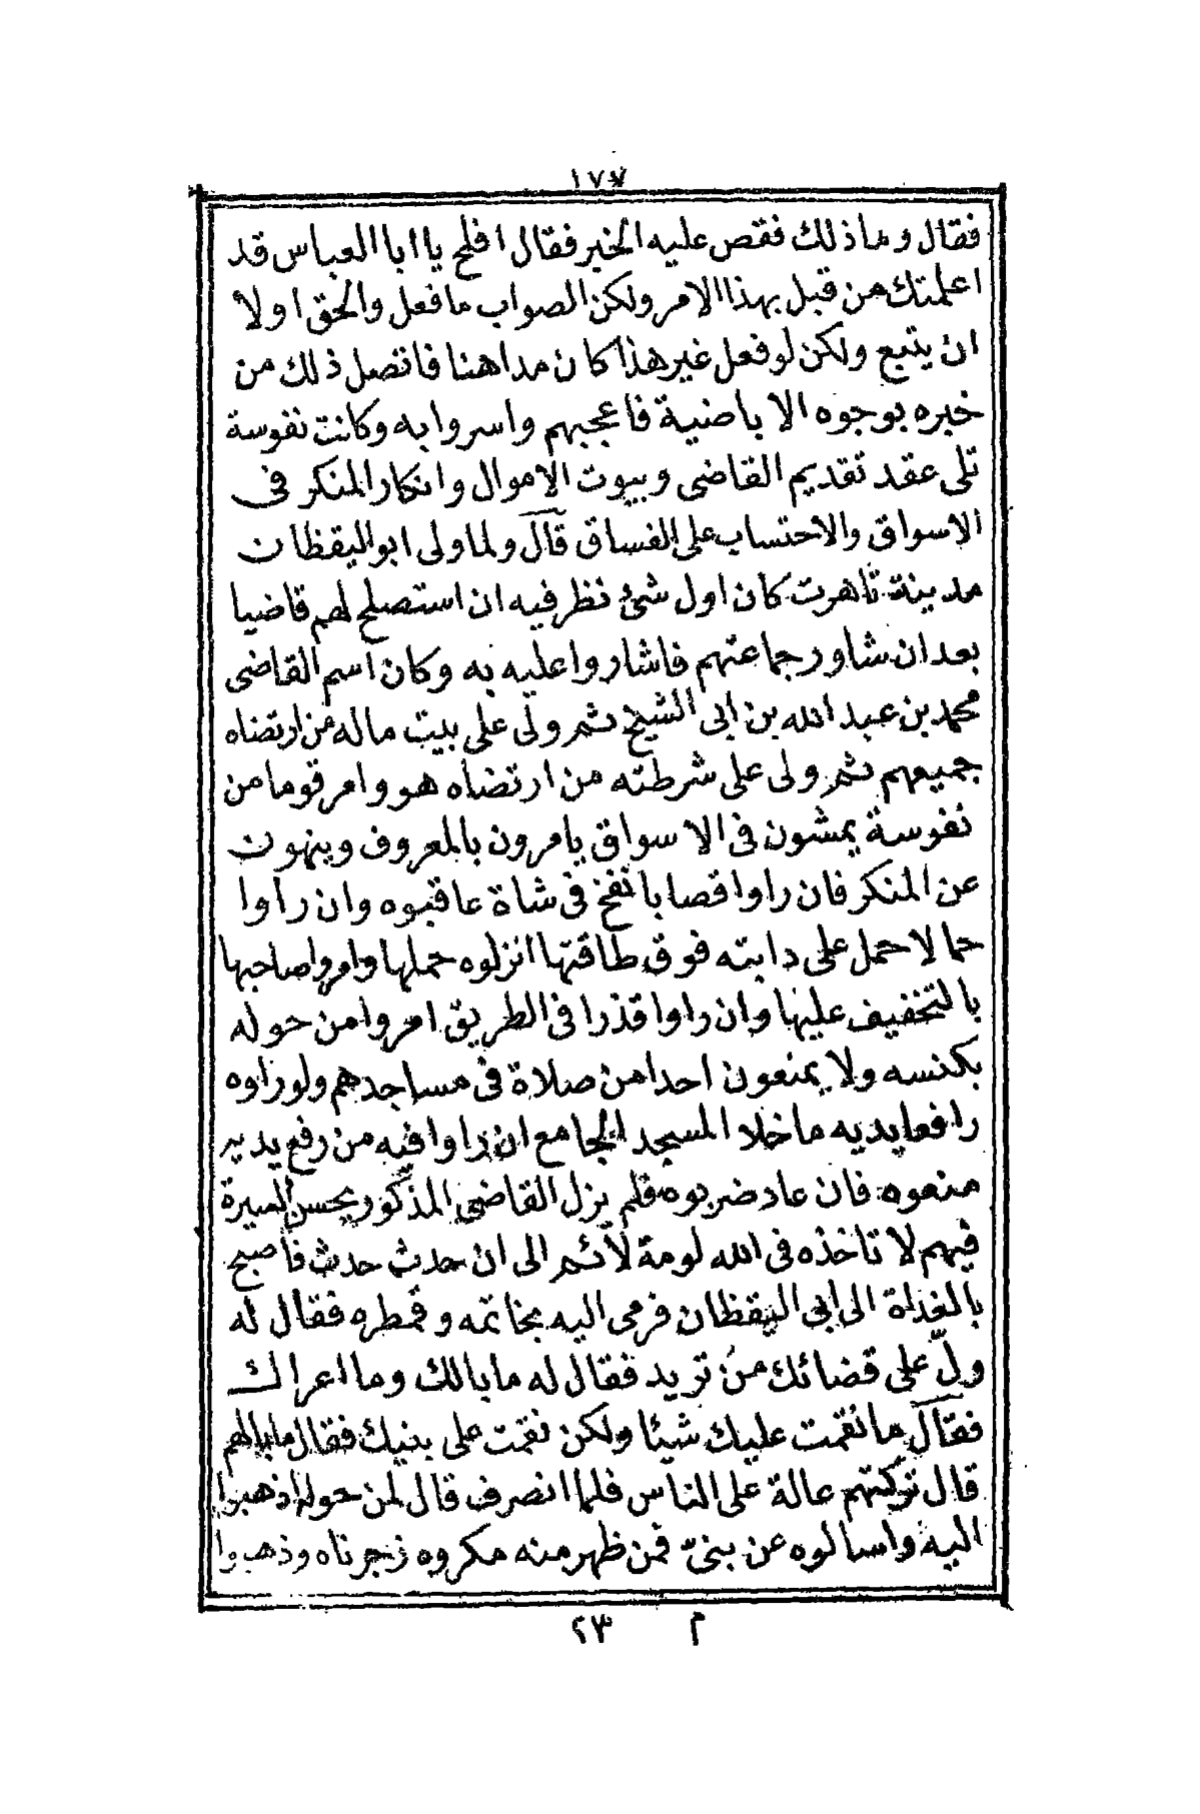 ١٧٧
فقال وما ذلك فقص عليه الخبر فقال افلح يا ابا العباس قد
اعلمتك من قبل بهذا الامر ولكن الصواب ما فعل والحق اولا
ان يتبع ولكن لو فعل غير هذا كان مداهنا فاتصل ذلك من
خبره بوجوه الاباضية فاعجبهم واسروا به وكانت نفوسة
تلى عقد تقديم القاضى وبيوت الاموال وانكار المنكر فى
الاسواق والاحتساب على الفساق قال ولما ولى ابو اليقظان
مدينة تاهرت كان اول شئ نظر فيه ان استصلح لهم قاضيا
بعد ان شاور جماعتهم فاشاروا عليه به وكان اسم القاضى
محمد بن عبد الله بن ابى الشيخ ثم ولّى على بيت ماله من ارتضاه
جميعهم ثم ولى على شرطته من ارتضاه هو وامر قوما من
نفوسة يمشون فى الاسواق يامرون بالمعروف وينهون
عن المنكر فان راوا قصابا نفخ فى شاة عاقبوه وان راوا
حمالا حمل على دابته فوق طاقتها انزلوه حملها وامروا صاحبها
بالتخفيف عليها وان راوا قذرا فى الطريق امروا من حوله
بكنسه ولا يمنعون احدا من صلاة فى مساجدهم ولو راوه
رافعا يديه ما خلا المسجد الجامع ان راوا فيه من رفع يديه
منعوه فان عاد ضربوه فلم يزل القاضى المذكور يحسن السيرة
فيهم لا تاخذه فى الله لومة لائم الى ان حدث حدث فاصبح
بالغداة الى ابى اليقظان فرمى اليه بخاتمه وقمطره فقال له
ولّ على قضائك من تريد فقال له ما بالك وما اعراك
فقال ما نقمت عليك شيئا ولكن نقمت على بنيك فقال ما بالهم
قال تركتهم عالة على الناس فلما انصرف قال لمن حوله اذهبوا
اليه واسالوه عن بنىّ فمن ظهر منه مكروه زجرناه وذهبوا
م ٢٣